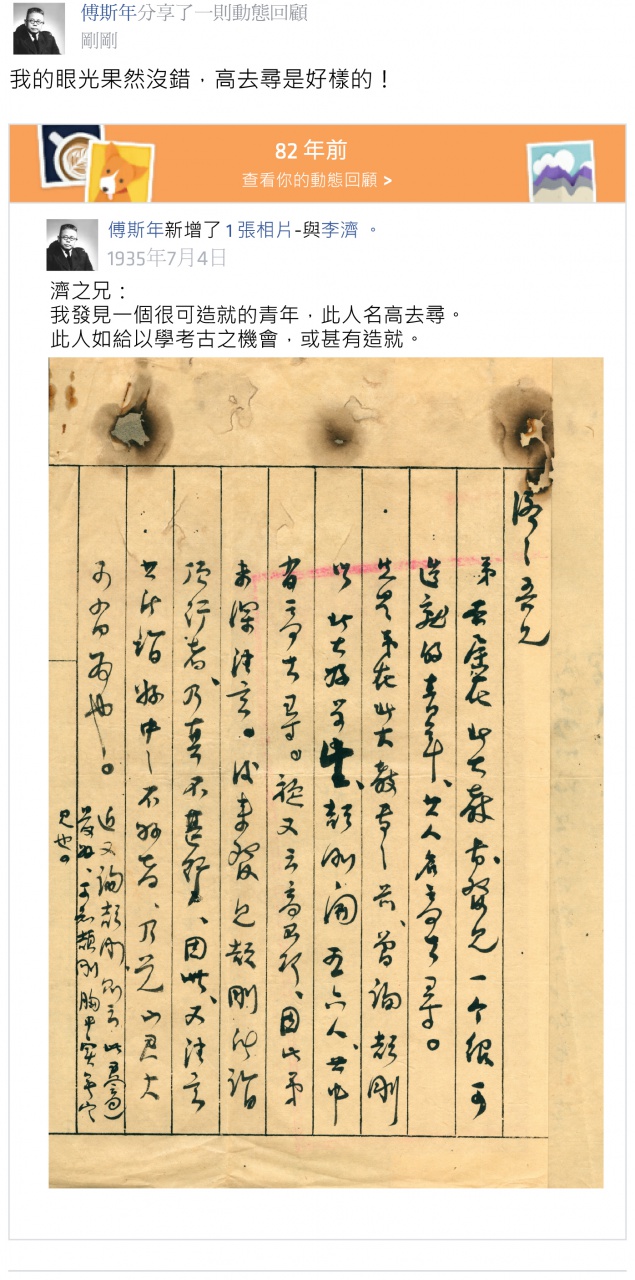 傅斯年分享了一則動態回顧
剛剛
我的眼光果然沒錯，高去尋是好樣的！
82 年前
查看你的動態回顧 >
傅斯年新增了1張相片-與李濟。
1935年7月4日
濟之兄：
我發見一個很可造就的青年，此人名高去尋。
此人如給以學考古之機會，或甚有造就。
濟之吾兄
弟在北大教書、發見一个很可
造就的青年、其人名高去尋。
先是弟在北大教書之前、曾詢頡剛
以北大好學生、頡剛開五六人、其中
有高去尋。又云高、因此弟
未深注意。後來發見頡剛所謂
頂好者、乃真不甚好、因此、又注意
其所謂好中之不好者、乃見此君大
可有為也。
近又詢頡剛、則云此君
可見頡剛胸中實無定
見也。